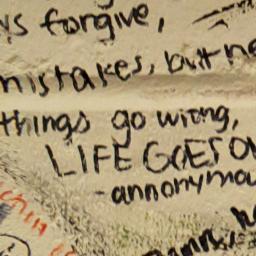 ys forgive,
mistakes, but ne
things go wrong,
LIFE GOES O
-annonymou